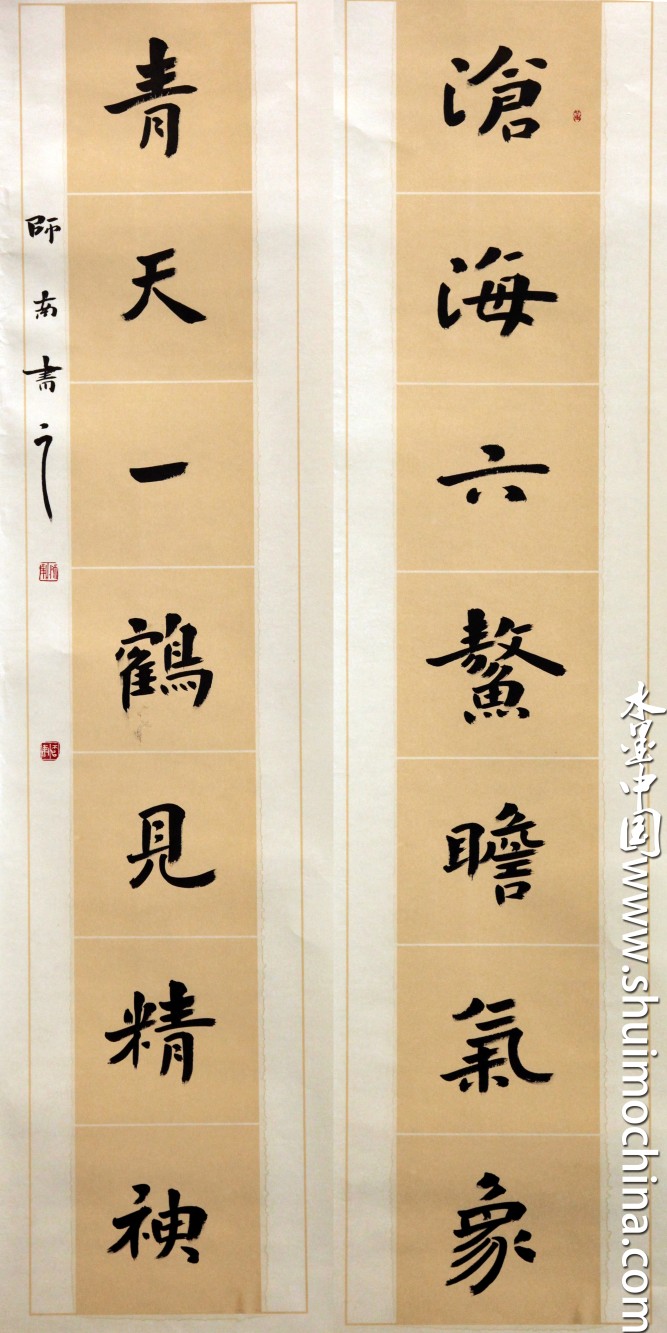 滄海六鰲瞻氣象
青天一鶴見精神
師南書之
水墨中国www.shuimochina.com